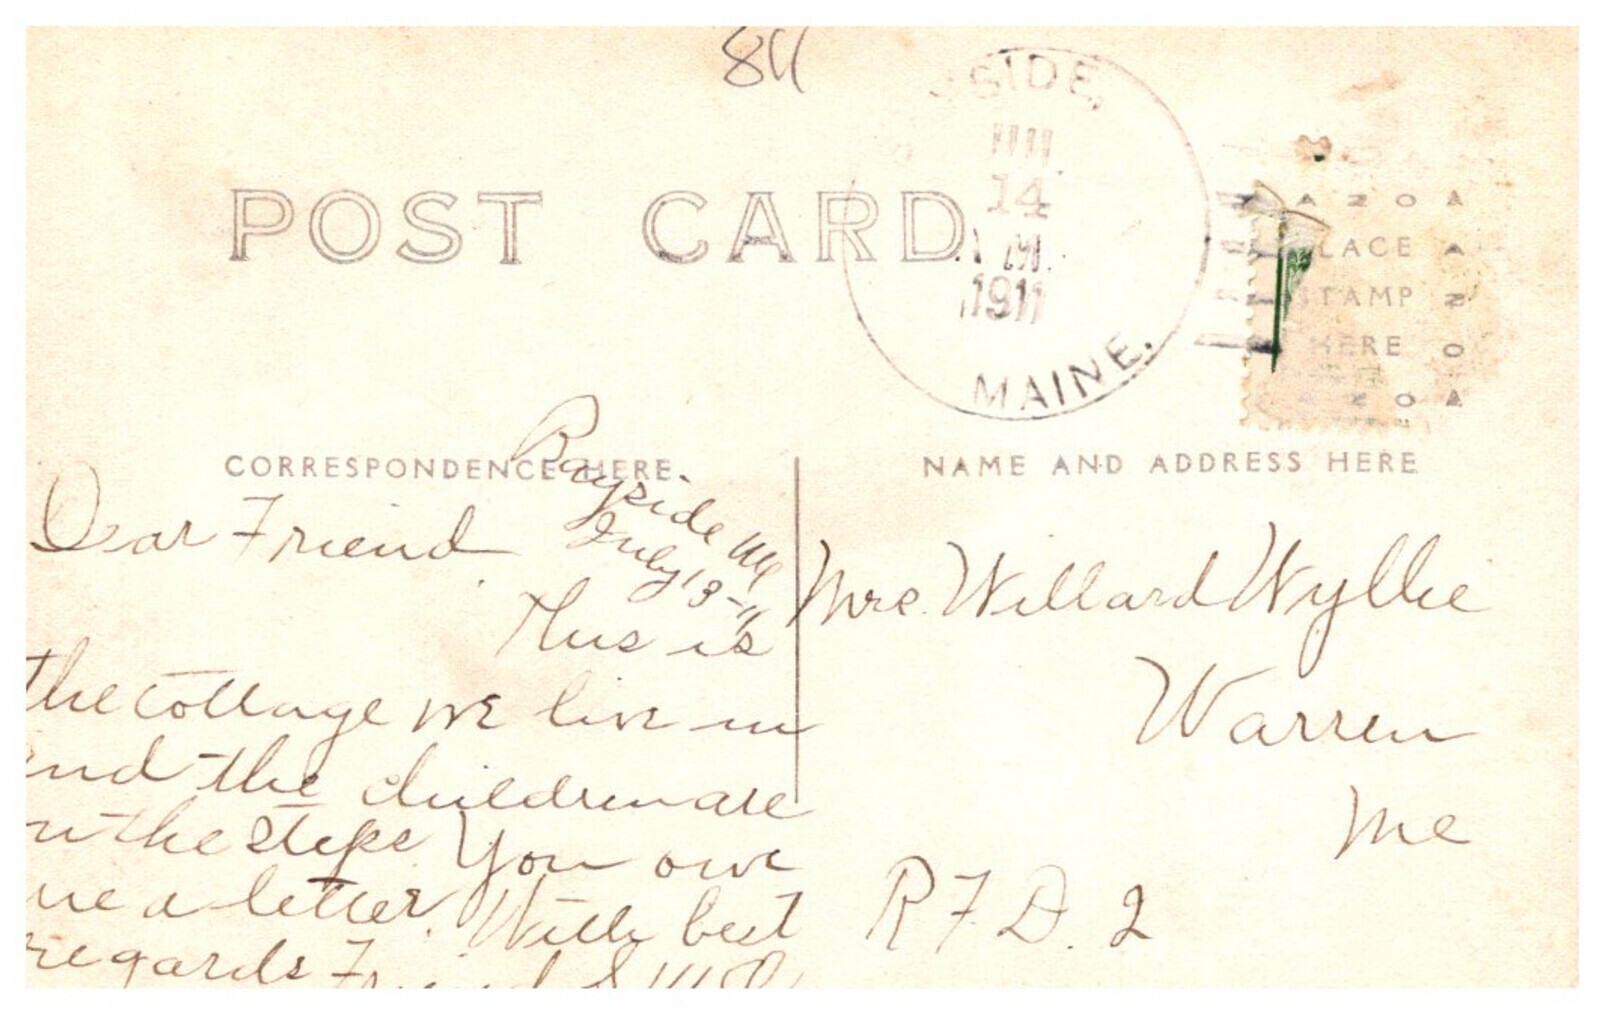 84
SIDE,
14
M.
1911
MAINE.
POST CARD
AZOA
LACE
STAMP
HERE
CORRESPONDENCE HERE
NAME AND ADDRESS HERE
Bayside Me
July 13-11
Dear Friend
This is
the cottage we live in
and the children are
on the steps You owe
me a letter. With best
regards Friend
Mrs. Willard Wyllie
Warren
Me
R F D. 2